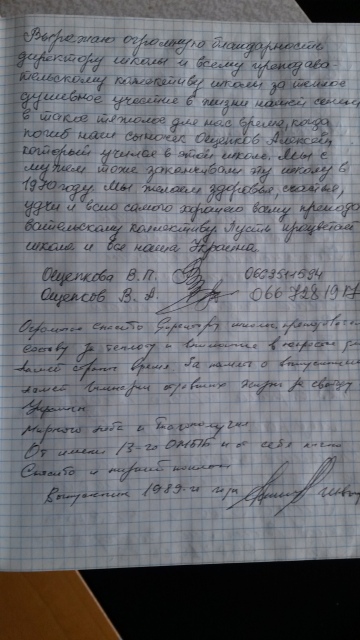 Выражаю огромную благодарность
директору школы и всему препода-
тельскому коллективу школы за теплое
душевное участие в жизни нашей семьи
в такое тяжелое для нас время, когда
погиб наш сыночек Ощепков Алексей,
который учился в этой школе. Мы с
мужем тоже заканчивали эту школу в
году. Мы желаем здоровья, счастья,
удачи и всего самого хорошего всему препода
вательскому коллективу. Пусть процветает
школа и вся наша Украина.
Ощепкова В. П.
Ощепков В. А.
Огромное спасибо Директору школы, преподават
составу за теплоту и внимание в
время. За память о выпускниках
жизни за свободу
Украины
Мирного неба и благополучия
От имени 13-го ОМПБ и от себя лично
Спасибо и низкий поклон
Выпускник 1989-го года